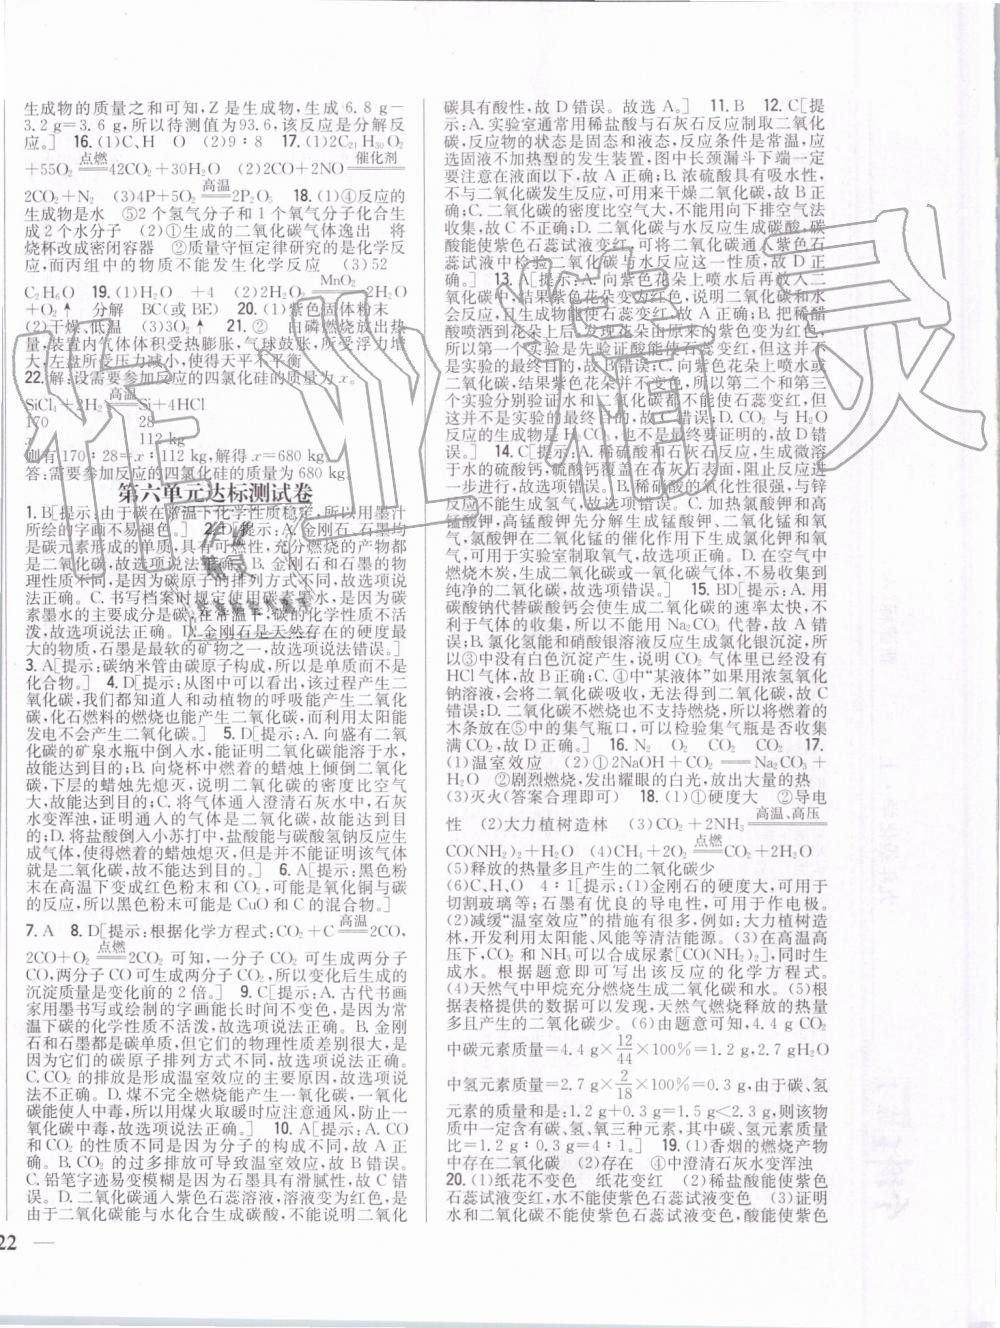 生成物的质量之和可知,Z是生成物,生成6.8 g-
3.2 g=3.6 g,所以待测值为93.6,该反应是分解反
应。] 16.(1)C、H O (2)9∶8 17.(1)2C₂₁H₃₀O₂
+55O₂ 点燃 42CO₂+30H₂O (2)2CO+2NO 催化剂
2CO₂+N₂ (3)4P+5O₂ 高温 2P₂O₅ 18.(1)④反应的
生成物是水 ⑤2个氢气分子和1个氧气分子化合生
成2个水分子 (2)①生成的二氧化碳气体逸出 将
烧杯改成密闭容器 ②质量守恒定律研究的是化学反
应,而丙组中的物质不能发生化学反应 (3)52
C₂H₆O 19.(1)H₂O +4 (2)2H₂O₂ MnO₂ 2H₂O
+O₂↑ 分解 BC(或BE) 20.(1)紫色固体粉末
(2)干燥、低温 (3)3O₂↑ 21.② 白磷燃烧放出热
量,装置内气体体积受热膨胀,气球鼓胀,所受浮力增
大,左盘所受压力减小,使得天平不平衡
22.解:设需要参加反应的四氯化硅的质量为x。
SiCl₄+2H₂ 高温 Si+4HCl
170 28
x 112 kg
则有170∶28=x∶112 kg,解得x=680 kg
答:需要参加反应的四氯化硅的质量为680 kg
第六单元达标测试卷
1.B[提示:由于碳在常温下化学性质稳定,所以用墨汁
所绘的字画不易褪色。] 2.D[提示:A.金刚石、石墨均
是碳元素形成的单质,具有可燃性,充分燃烧的产物都
是二氧化碳,故选项说法正确。B.金刚石和石墨的物
理性质不同,是因为碳原子的排列方式不同,故选项说
法正确。C.书写档案时规定使用碳素墨水,是因为碳
素墨水的主要成分是碳,在常温下,碳的化学性质不活
泼,故选项说法正确。D.金刚石是天然存在的硬度最
大的物质,石墨是最软的矿物之一,故选项说法错误。]
3.A[提示:碳纳米管由碳原子构成,所以是单质而不是
化合物。] 4.D[提示:从图中可以看出,该过程产生二
氧化碳,我们都知道人和动植物的呼吸能产生二氧化
碳,化石燃料的燃烧也能产生二氧化碳,而利用太阳能
发电不会产生二氧化碳。] 5.D[提示:A.向盛有二氧
化碳的矿泉水瓶中倒入水,能证明二氧化碳能溶于水,
故能达到目的;B.向烧杯中燃着的蜡烛上倾倒二氧化
碳,下层的蜡烛先熄灭,说明二氧化碳的密度比空气
大,故能达到目的;C.将气体通入澄清石灰水中,石灰
水变浑浊,证明通入的气体是二氧化碳,故能达到目
的;D.将盐酸倒入小苏打中,盐酸能与碳酸氢钠反应生
成气体,使得燃着的蜡烛熄灭,但是并不能证明该气体
就是二氧化碳,故不能达到目的。] 6.A[提示:黑色粉
末在高温下变成红色粉末和CO₂,可能是氧化铜与碳
的反应,所以黑色粉末可能是CuO和C的混合物。]
7.A 8.D[提示:根据化学方程式:CO₂+C 高温 2CO,
2CO+O₂ 点燃 2CO₂可知,一分子CO₂可生成两分子
CO,两分子CO可生成两分子CO₂,所以变化后生成的
沉淀质量是变化前的2倍。] 9.C[提示:A.古代书画
家用墨书写或绘制的字画能长时间不变色,是因为常
温下碳的化学性质不活泼,故选项说法正确。B.金刚
石和石墨都是碳单质,但它们的物理性质差别很大,是
因为它们的碳原子排列方式不同,故选项说法正确。
C.CO₂的排放是形成温室效应的主要原因,故选项说
法不正确。D.煤不完全燃烧能产生一氧化碳,一氧化
碳能使人中毒,所以用煤火取暖时应注意通风,防止一
氧化碳中毒,故选项说法正确。] 10.A[提示:A.CO
和CO₂的性质不同是因为分子的构成不同,故A正
确。B.CO₂的过多排放可导致温室效应,故B错误。
C.铅笔字迹易变模糊是因为石墨具有滑腻性,故C错
误。D.二氧化碳通入紫色石蕊溶液,溶液变为红色,是
由于二氧化碳能与水化合生成碳酸,不能说明二氧化
22
碳具有酸性,故D错误。故选A。] 11.B 12.C[提
示:A.实验室通常用稀盐酸与石灰石反应制取二氧化
碳,反应物的状态是固态和液态,反应条件是常温,应
选固液不加热型的发生装置,图中长颈漏斗下端一定
要注意在液面以下,故A正确;B.浓硫酸具有吸水性,
不与二氧化碳发生反应,可用来干燥二氧化碳,故B正
确;C.二氧化碳的密度比空气大,不能用向下排空气法
收集,故C不正确;D.二氧化碳与水反应生成碳酸,碳
酸能使紫色石蕊试液变红,可将二氧化碳通入紫色石
蕊试液中检验二氧化碳与水反应这一性质,故D正
确。] 13.A[提示:A.向紫色花朵上喷水后再放入二
氧化碳中,结果紫色花朵变为红色,说明二氧化碳和水
会反应,且生成物能使石蕊变红,故A正确;B.把稀醋
酸喷洒到花朵上后,发现花朵由原来的紫色变为红色,
所以第一个实验是先验证酸能使石蕊变红,但这并不
是实验的最终目的,故B错误;C.向紫色花朵上喷水或
二氧化碳,结果紫色花朵并不变色,所以第二个和第三
个实验分别验证水和二氧化碳都不能使石蕊变红,但
这并不是实验的最终目的,故C错误;D.CO₂与H₂O
反应的生成物是H₂CO₃,也不是最终要证明的,故D错
误。] 14.C[提示:A.石灰石和稀硫酸反应,生成微溶
于水的硫酸钙,硫酸钙覆盖在石灰石表面,阻止反应进
一步进行,故选项错误。B.稀硝酸的氧化性很强,与锌
反应不能生成氢气,故选项错误。C.加热氯酸钾和高
锰酸钾,高锰酸钾先分解生成锰酸钾、二氧化锰和氧
气,氯酸钾在二氧化锰的催化作用下生成氯化钾和氧
气,可用于实验室制取氧气,故选项正确。D.在空气中
燃烧木炭,生成二氧化碳或一氧化碳气体,不易收集到
纯净的二氧化碳,故选项错误。] 15.BD[提示:A.用
碳酸钠代替碳酸钙会使生成二氧化碳的速率太快,不
利于气体的收集,所以不能用Na₂CO₃代替,故A错
误;B.氯化氢能和硝酸银溶液反应生成氯化银沉淀,所
以③中没有白色沉淀产生,说明CO₂气体里已经没有
HCl气体,故B正确;C.④中“某液体”如果用浓氢氧化
钠溶液,会将二氧化碳吸收,无法得到二氧化碳,故C
错误;D.二氧化碳不燃烧也不支持燃烧,所以将燃着的
木条放在⑤中的集气瓶口,可以检验集气瓶是否收集
满CO₂,故D正确。] 16.N₂ O₂ CO₂ CO₂ 17.
(1)温室效应 (2)①2NaOH+CO₂══Na₂CO₃+
H₂O ②剧烈燃烧,发出耀眼的白光,放出大量的热
(3)灭火(答案合理即可) 18.(1)①硬度大 ②导电
性 (2)大力植树造林 (3)CO₂+2NH₃ 高温、高压
CO(NH₂)₂+H₂O (4)CH₄+2O₂ 点燃 CO₂+2H₂O
(5)释放的热量多且产生的二氧化碳少
(6)C、H、O 4∶1[提示:(1)金刚石的硬度大,可用于
切割玻璃等;石墨有优良的导电性,可用于作电极。
(2)减缓“温室效应”的措施有很多,例如:大力植树造
林,开发利用太阳能、风能等清洁能源。(3)在高温高
压下,CO₂和NH₃可以合成尿素[CO(NH₂)₂],同时生
成水。根据题意即可写出该反应的化学方程式。
(4)天然气中甲烷充分燃烧生成二氧化碳和水。(5)根
据表格提供的数据可以发现,天然气燃烧释放的热量
多且产生的二氧化碳少。(6)由题意可知,4.4 g CO₂
中碳元素质量=4.4 g×12/44×100%=1.2 g,2.7 gH₂O
中氢元素质量=2.7 g×2/18×100%=0.3 g,由于碳、氢
元素的质量和是:1.2 g+0.3 g=1.5 g<2.3 g,则该物
质中一定含有碳、氢、氧三种元素,其中碳、氢元素质量
比=1.2 g∶0.3 g=4∶1。] 19.(1)香烟的燃烧产物
中存在二氧化碳 (2)存在 ④中澄清石灰水变浑浊
20.(1)纸花不变色 纸花变红 (2)稀盐酸能使紫色
石蕊试液变红,水不能使紫色石蕊试液变色 (3)证明
水和二氧化碳不能使紫色石蕊试液变色,酸能使紫色